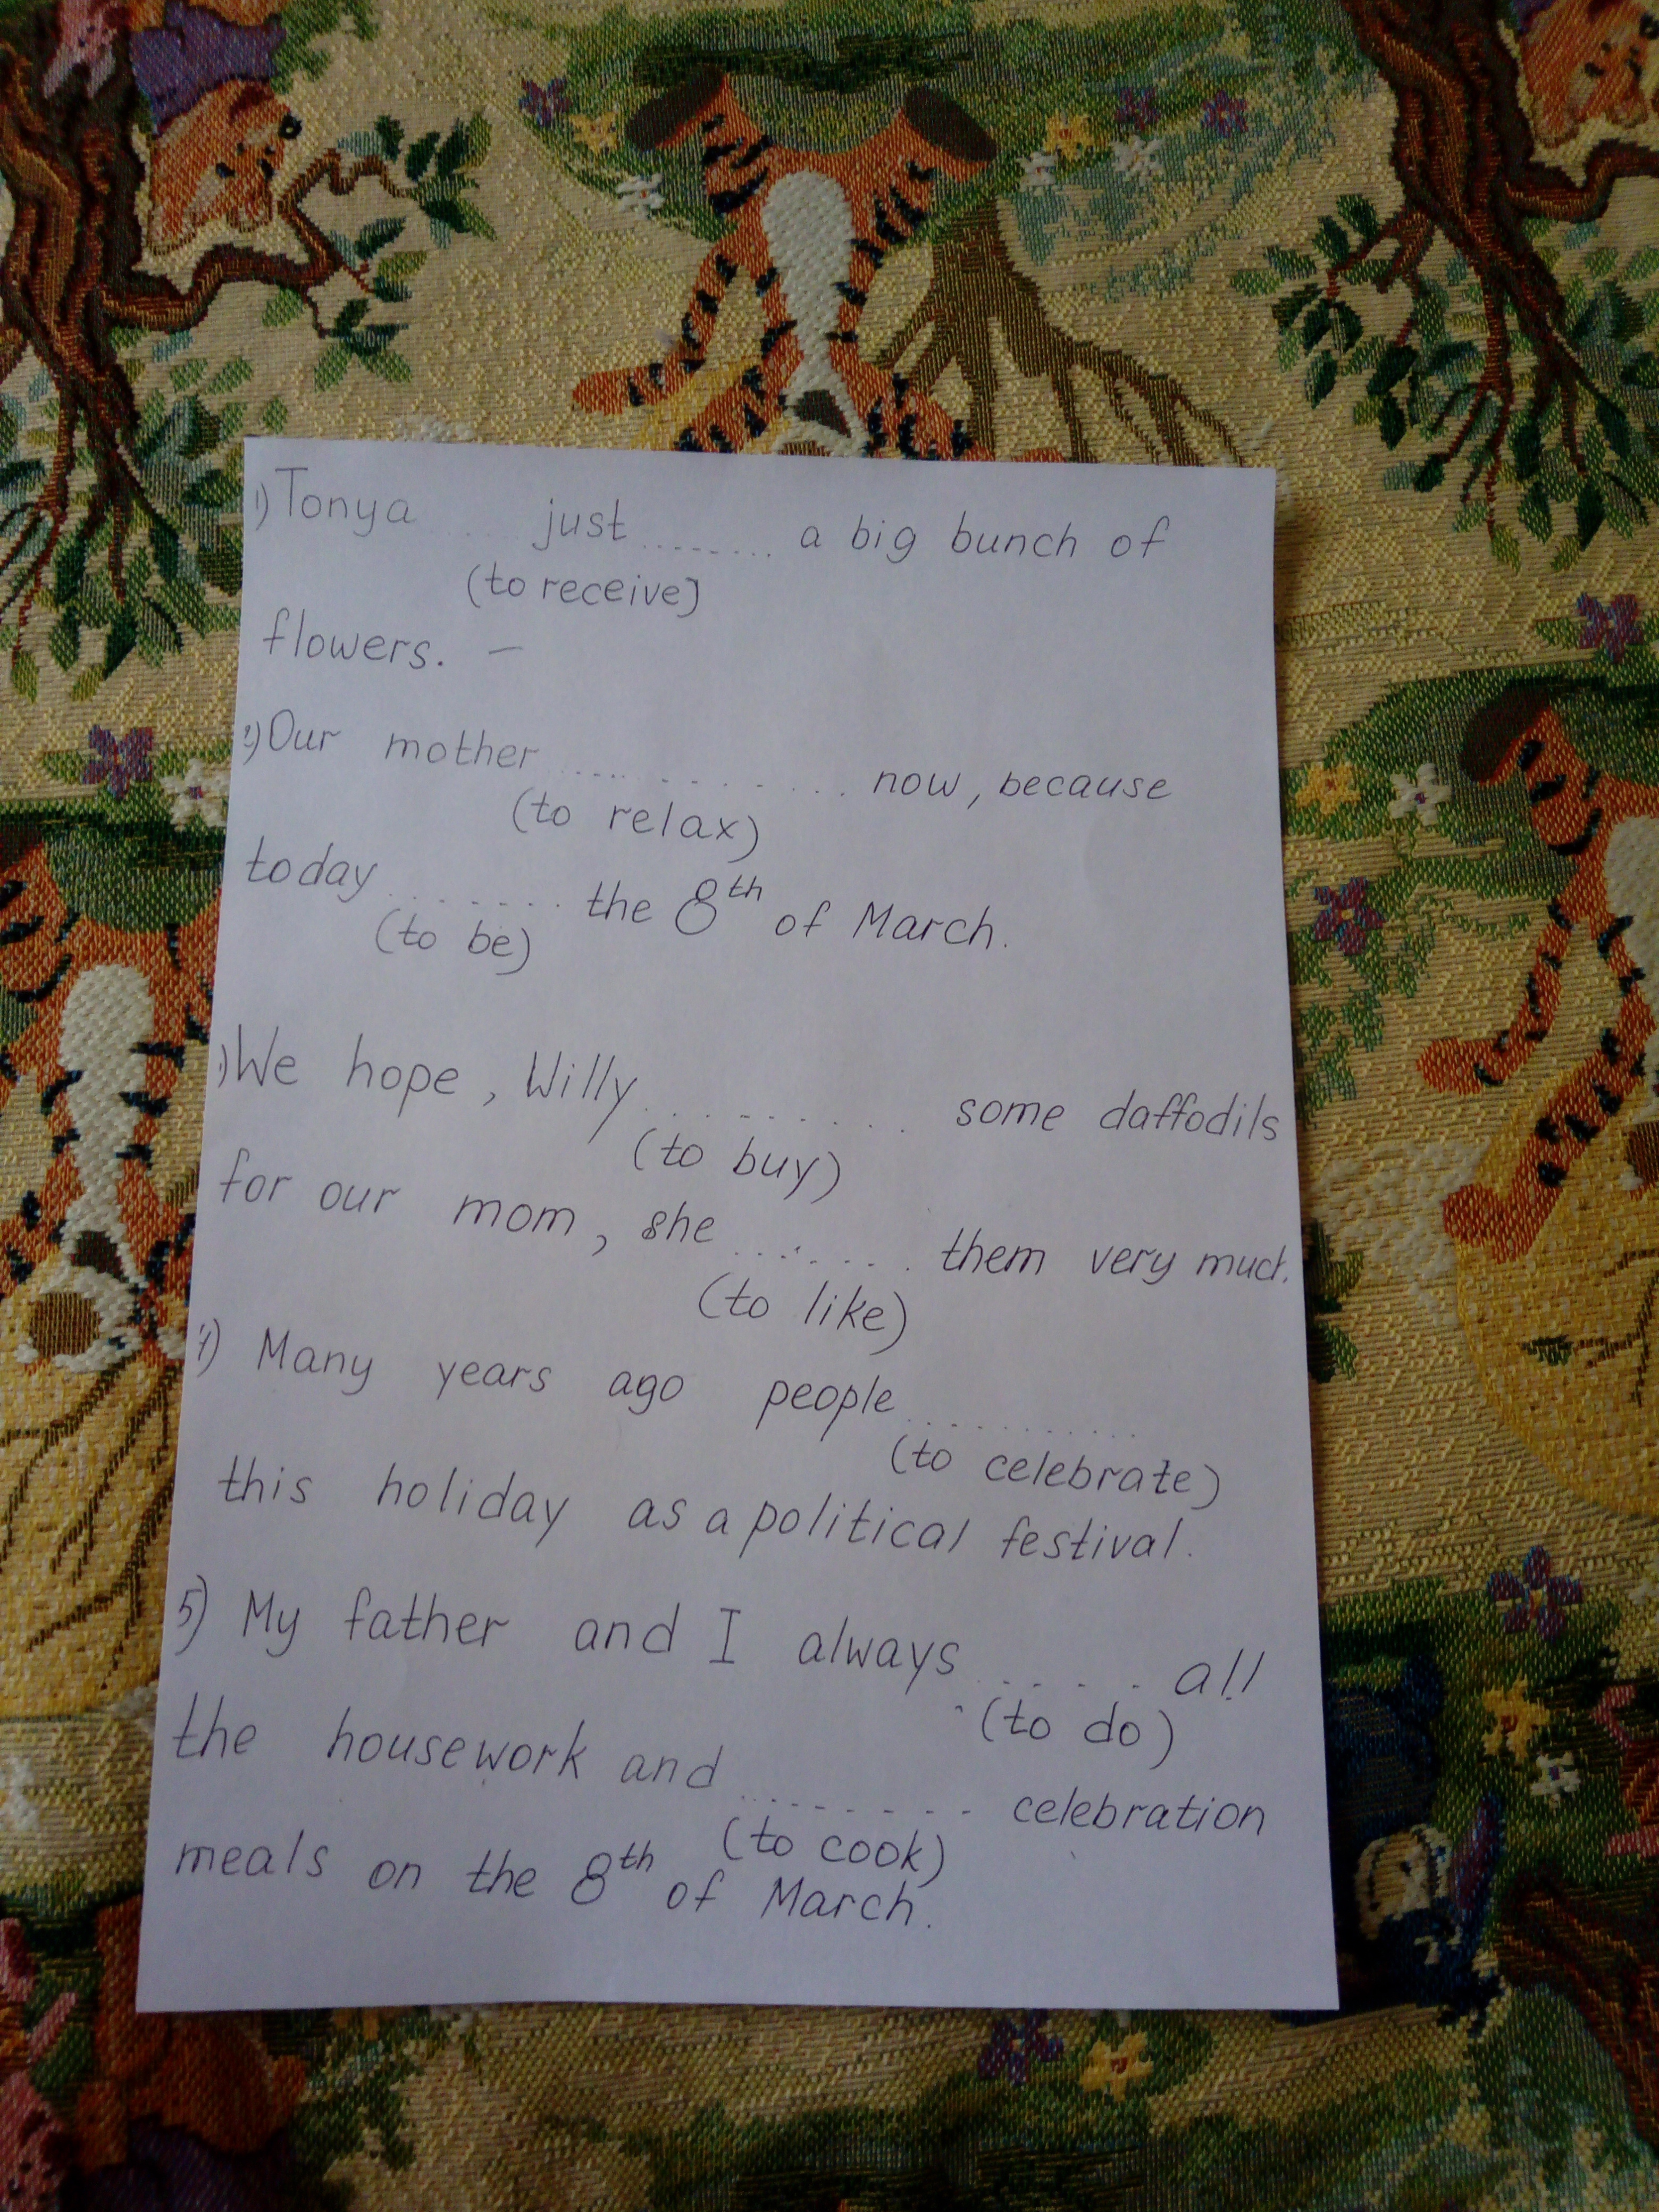 1) Tonya .... just ........ a big bunch of
(to receive)
flowers. —
2) Our mother ............. now, because
(to relax)
today ....... the 8th of March.
(to be)
) We hope, Willy .......... some daffodils
(to buy)
for our mom, she ........ them very much.
(to like)
4) Many years ago people ..........
(to celebrate)
this holiday as a political festival.
5) My father and I always ..... all
(to do)
the housework and ......... celebration
(to cook)
meals on the 8th of March.